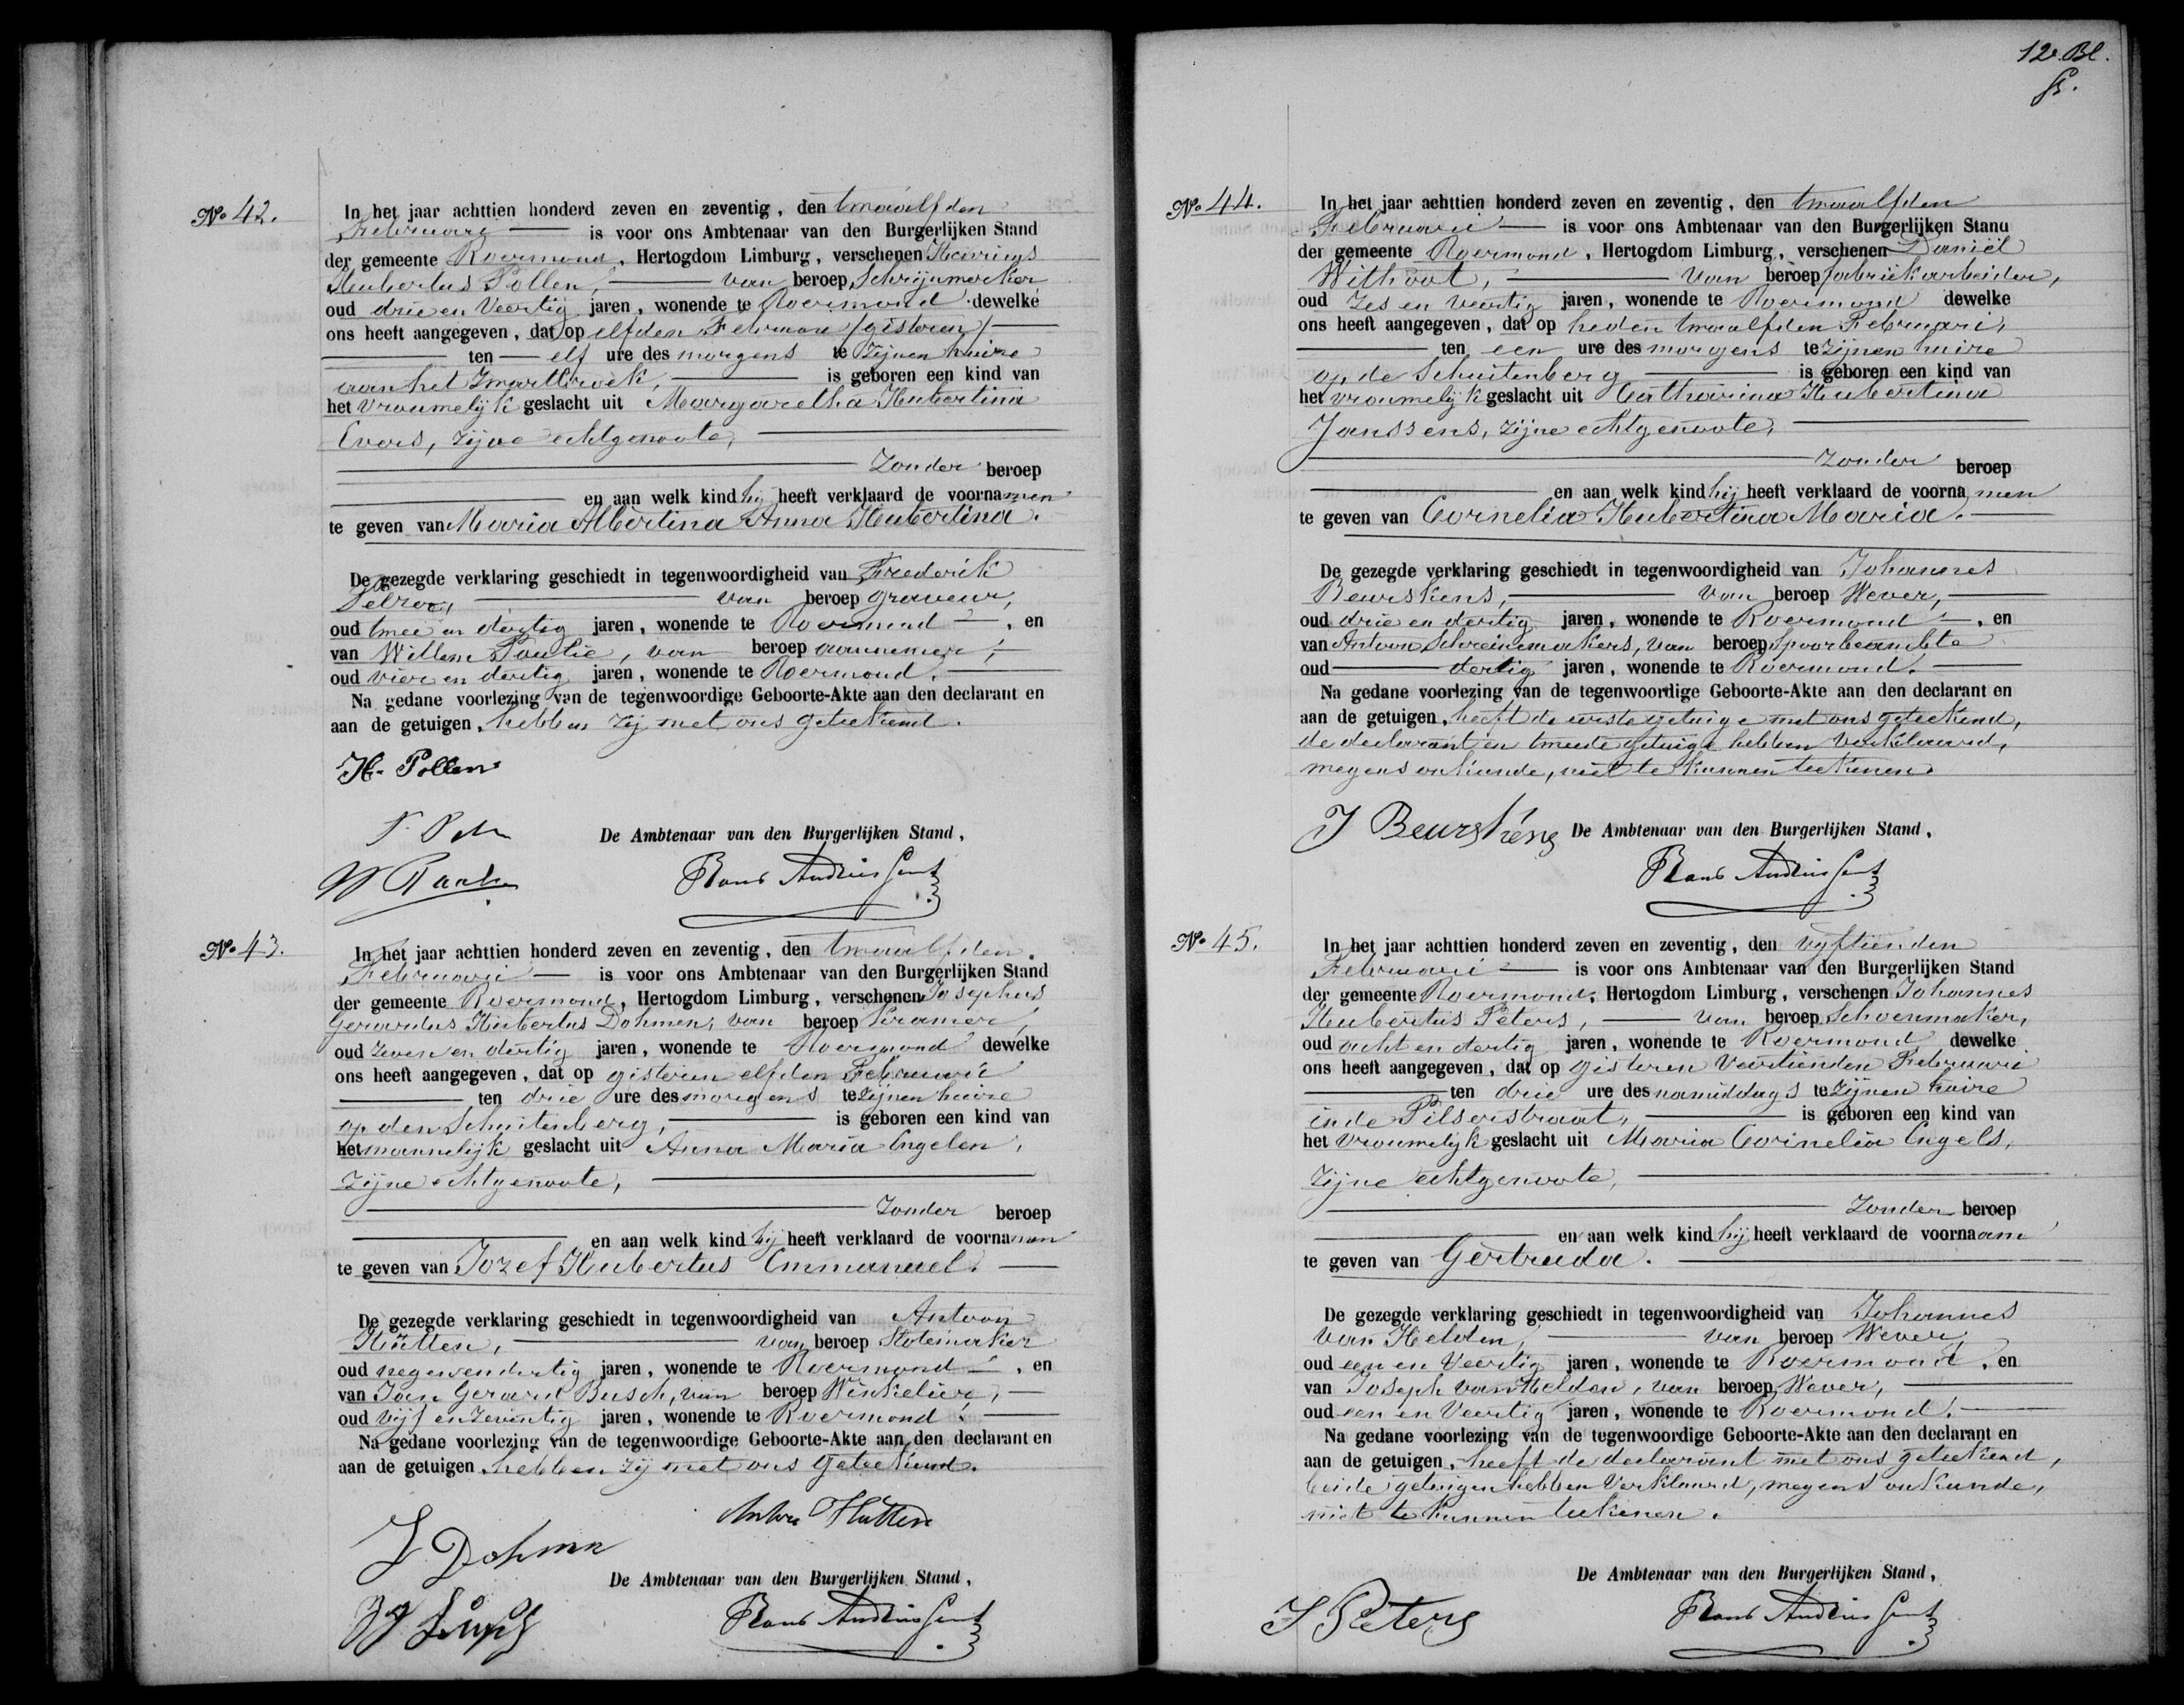 No 42.
In het jaar achttien honderd zeven en zeventig, den twaalfden
Februari is voor ons Ambtenaar van den Burgerlijken Stand
der gemeente Roermond, Hertogdom Limburg, verschenen Henricus
Hubertus Pollen, van beroep Schrijnwerker
oud drie en Veertig jaren, wonende te Roermond dewelke
ons heeft aangegeven, dat op elfden Februari (gisteren)
ten elf ure des morgens te zijnen huize
aan het Zwartbroek, is geboren een kind van
het vrouwelijk geslacht uit Margaretha Hubertina
Evers, zijne echtgenoote,
Zonder beroep
en aan welk kind hij heeft verklaard de voornamen
te geven van Maria Albertina Anna Hubertina.
De gezegde verklaring geschiedt in tegenwoordigheid van Frederik
van beroep graveur,
oud twee en dertig jaren, wonende te Roermond, en
van Willem, van beroep aannemer,
oud vier en dertig jaren, wonende te Roermond.
Na gedane voorlezing van de tegenwoordige Geboorte-Akte aan den declarant en
aan de getuigen, hebben zij met ons geteekend.
H. Pollen
De Ambtenaar van den Burgerlijken Stand,
No 43.
In het jaar achttien honderd zeven en zeventig, den twaalfden
Februari is voor ons Ambtenaar van den Burgerlijken Stand
der gemeente Roermond, Hertogdom Limburg, verschenen Josephus
Gerardus Hubertus Dohmen, van beroep Kramer,
oud zeven en dertig jaren, wonende te Roermond dewelke
ons heeft aangegeven, dat op gisteren elfden Februari
ten drie ure des morgens te zijnen huize
op den Schuitenberg, is geboren een kind van
het mannelijk geslacht uit Anna Maria Engelen,
zijne echtgenoote,
Zonder beroep
en aan welk kind hij heeft verklaard de voornamen
te geven van Jozef Hubertus Emmanuel.
De gezegde verklaring geschiedt in tegenwoordigheid van Antoon
Hütten, van beroep Stoelmaker
oud negenendertig jaren, wonende te Roermond, en
van Jan Gerard Busch, van beroep Winkelier,
oud vijf en zeventig jaren, wonende te Roermond.
Na gedane voorlezing van de tegenwoordige Geboorte-Akte aan den declarant en
aan de getuigen, hebben zij met ons geteekend.
Hütten
J. Dohmen
De Ambtenaar van den Burgerlijken Stand,
12e Bl.
No 44.
In het jaar achttien honderd zeven en zeventig, den twaalfden
Februari is voor ons Ambtenaar van den Burgerlijken Stand
der gemeente Roermond, Hertogdom Limburg, verschenen Daniël
Withoot, van beroep fabriekarbeider,
oud zes en veertig jaren, wonende te Roermond dewelke
ons heeft aangegeven, dat op heden twaalfden Februari,
ten een ure des morgens te zijnen huize
op de Schuitenberg is geboren een kind van
het vrouwelijk geslacht uit Catharina Hubertina
Janssens, zijne echtgenoote,
zonder beroep
en aan welk kind hij heeft verklaard de voornamen
te geven van Cornelia Hubertina Maria.
De gezegde verklaring geschiedt in tegenwoordigheid van Johannes
Beurskens, van beroep Wever,
oud drie en dertig jaren, wonende te Roermond, en
van Antoon Schreinemakers, van beroep Spoorbeambte
oud dertig jaren, wonende te Roermond.
Na gedane voorlezing van de tegenwoordige Geboorte-Akte aan den declarant en
aan de getuigen, heeft de eerste getuige met ons geteekend,
de declarant en tweede getuige hebben verklaard,
wegens onkunde, niet te kunnen teekenen.
J Beurskens
De Ambtenaar van den Burgerlijken Stand,
No 45.
In het jaar achttien honderd zeven en zeventig, den vijftienden
Februari is voor ons Ambtenaar van den Burgerlijken Stand
der gemeente Roermond, Hertogdom Limburg, verschenen Johannes
Hubertus Peters, van beroep Schoenmaker,
oud acht en dertig jaren, wonende te Roermond dewelke
ons heeft aangegeven, dat op gisteren Veertienden Februari
ten drie ure des namiddags te zijnen huize
in de Pilserstraat, is geboren een kind van
het vrouwelijk geslacht uit Maria Cornelia Engels,
zijne echtgenoote,
Zonder beroep
en aan welk kind hij heeft verklaard de voornaam
te geven van Gertruda.
De gezegde verklaring geschiedt in tegenwoordigheid van Johannes
van Helden, van beroep Wever,
oud een en Veertig jaren, wonende te Roermond, en
van Joseph van Helden, van beroep Wever,
oud een en Veertig jaren, wonende te Roermond.
Na gedane voorlezing van de tegenwoordige Geboorte-Akte aan den declarant en
aan de getuigen, heeft de declarant met ons geteekend,
beide getuigen hebben verklaard, wegens onkunde,
niet te kunnen teekenen.
De Ambtenaar van den Burgerlijken Stand,
J Peters